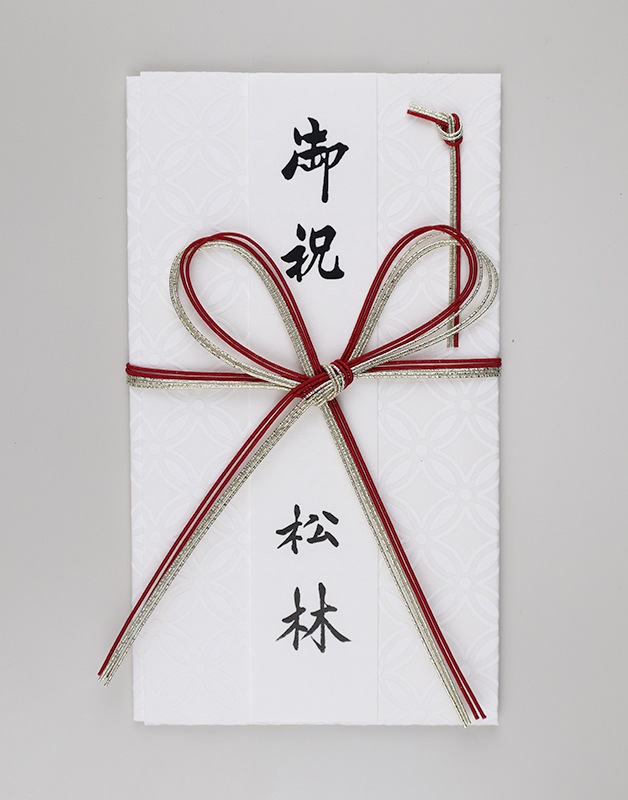 御祝
松林